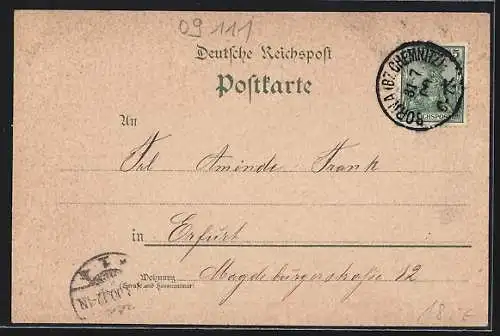 09 111
Deutsche Reichspost
Postkarte
BORNA (BZ. CHEMNITZ)
An
Frl Aminde Frank
in Erfurt
Wohnung
(Straße und Hausnummer)
Magdeburgerstraße 12